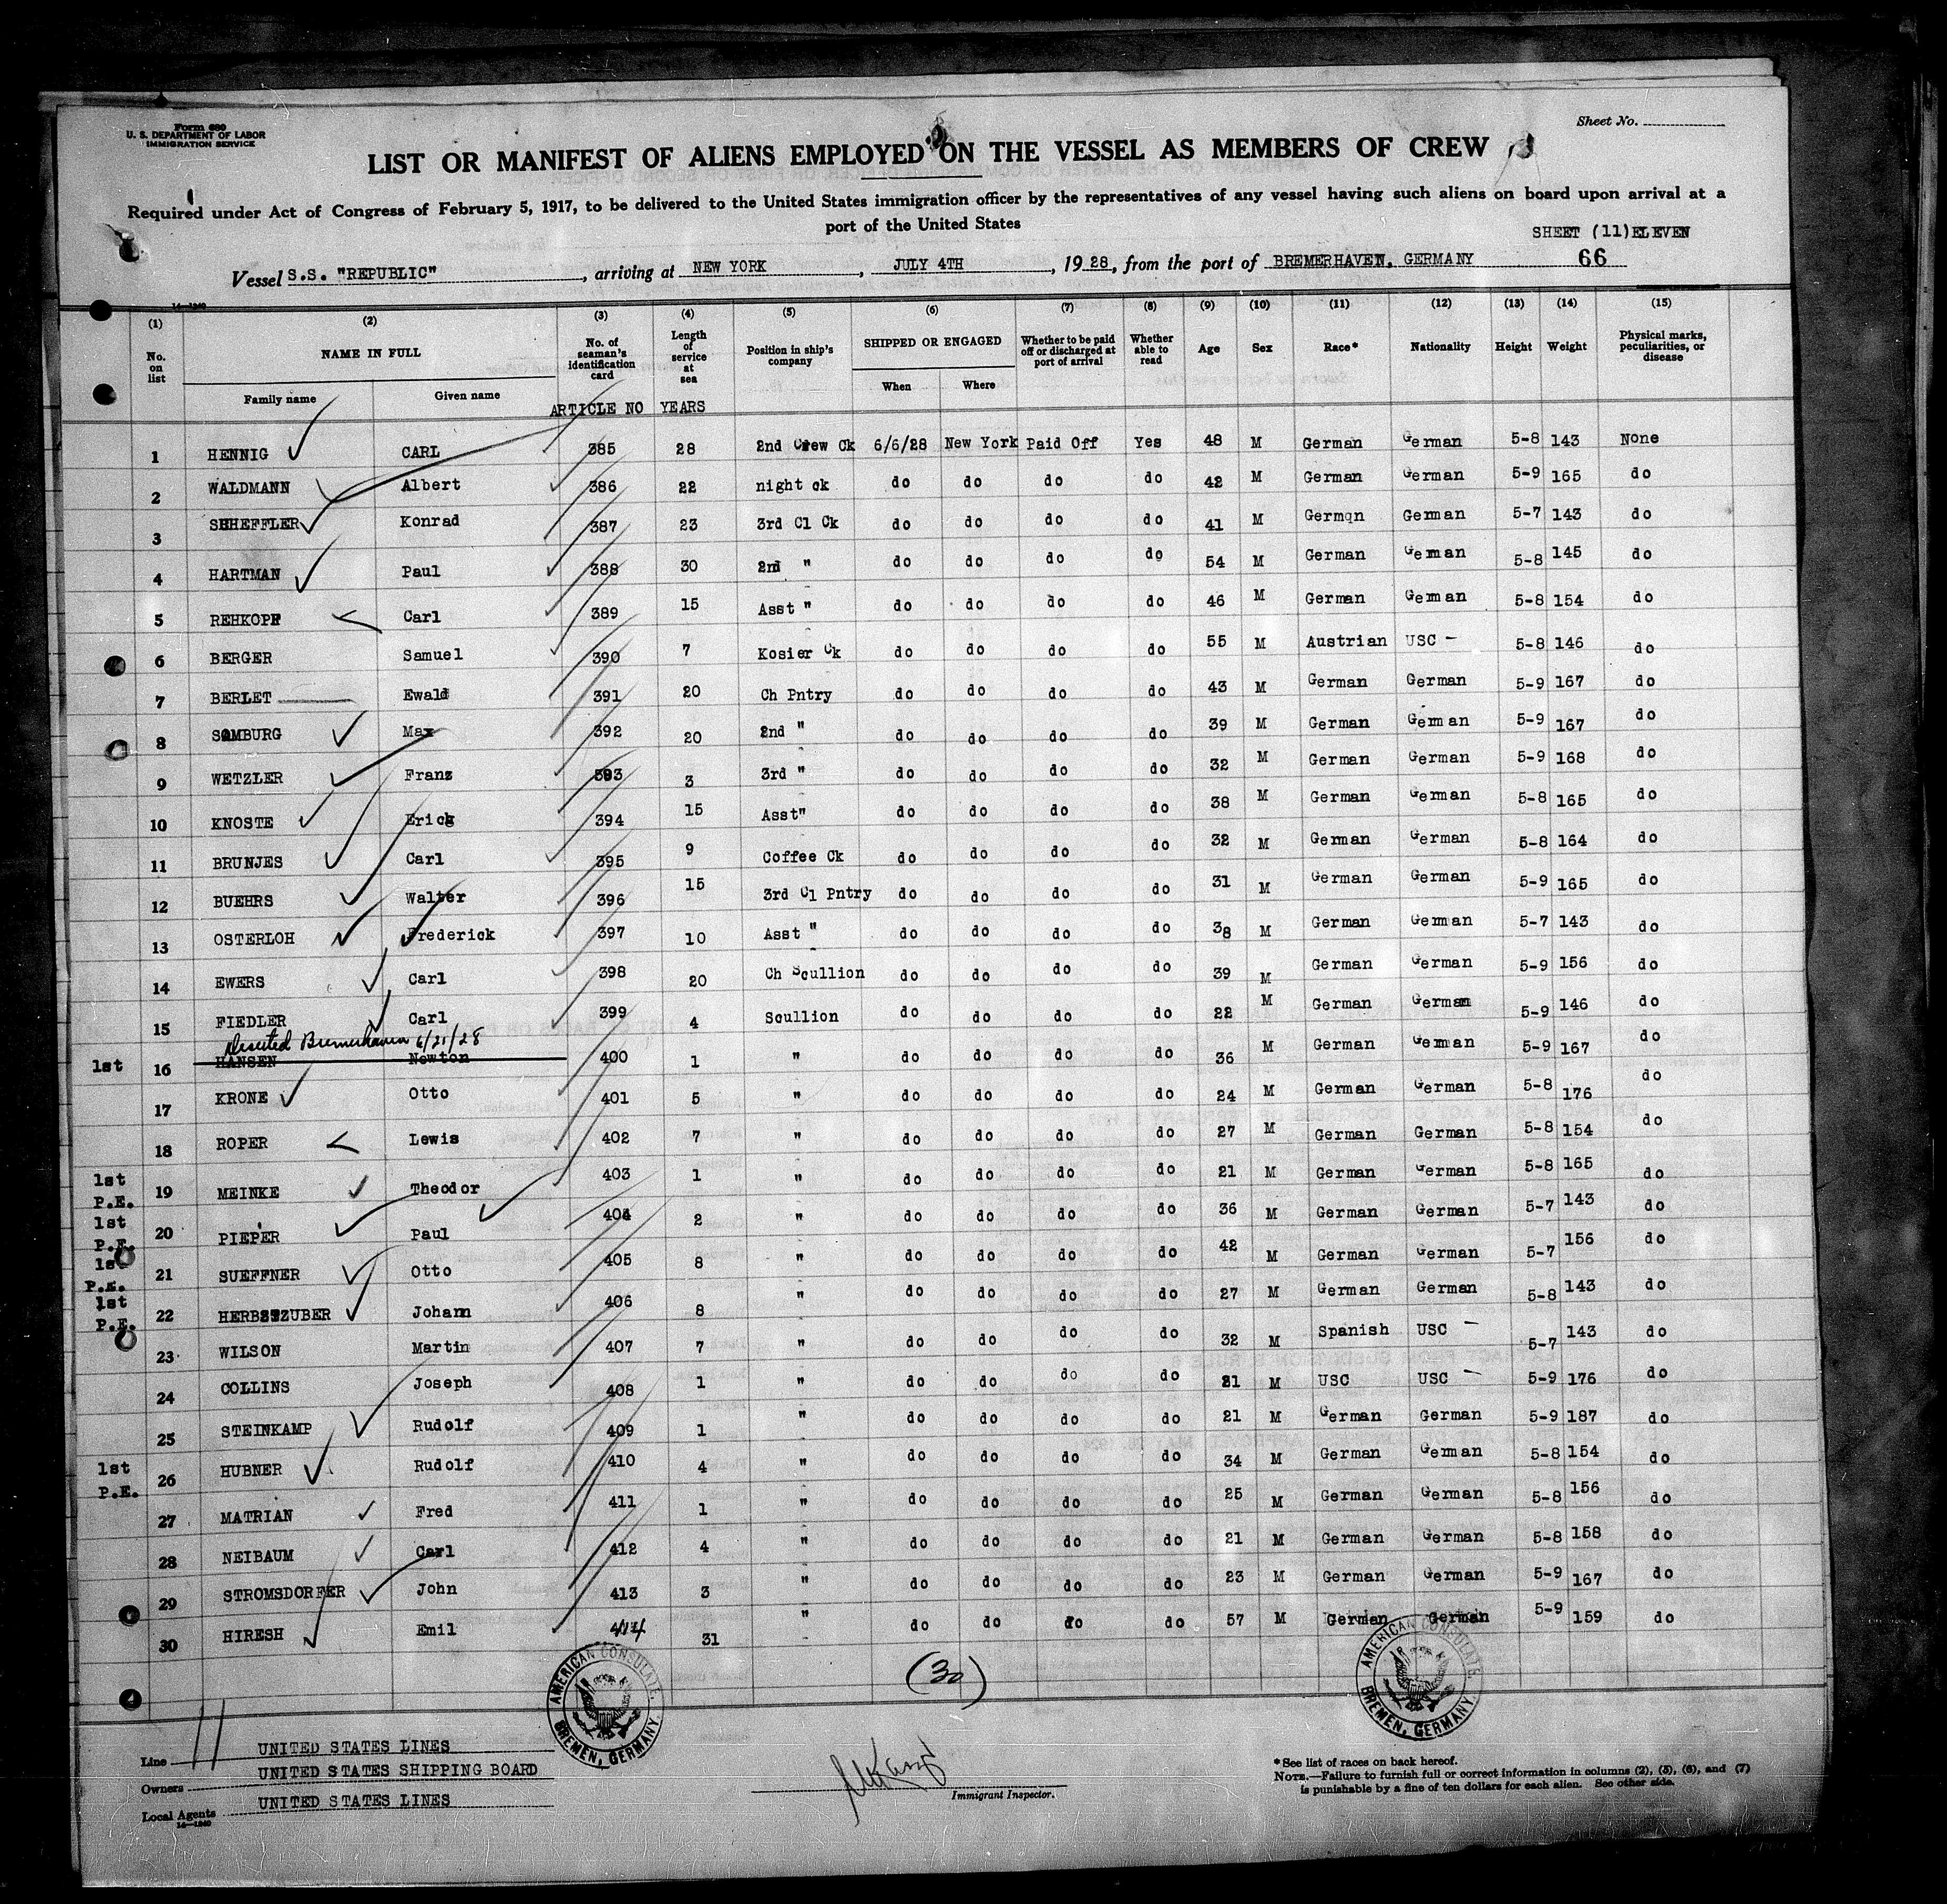 Form 680
U. S. DEPARTMENT OF LABOR
IMMIGRATION SERVICE
Sheet No.
LIST OR MANIFEST OF ALIENS EMPLOYED ON THE VESSEL AS MEMBERS OF CREW
Required under Act of Congress of February 5, 1917, to be delivered to the United States immigration officer by the representatives of any vessel having such aliens on board upon arrival at a
port of the United States
SHEET (11) ELEVEN
Vessel S.S. "REPUBLIC", arriving at NEW YORK, JULY 4TH, 1928, from the port of BREMERHAVEN, GERMANY 66
14-1240
(1) (2) (3) (4) (5) (6) (7) (8) (9) (10) (11) (12) (13) (14) (15)
No. on list NAME IN FULL No. of seaman's identification card Length of service at sea Position in ship's company SHIPPED OR ENGAGED Whether to be paid off or discharged at port of arrival Whether able to read Age Sex Race* Nationality Height Weight Physical marks, peculiarities, or disease
Family name Given name When Where
ARTICLE NO YEARS
1 HENNIG CARL 385 28 2nd Crew Ck 6/6/28 New York Paid Off Yes 48 M German German 5-8 143 None
2 WALDMANN Albert 386 22 night ck do do do do 42 M German German 5-9 165 do
3 SHEFFLER Konrad 387 23 3rd Cl Ck do do do do 41 M Germqn German 5-7 143 do
4 HARTMAN Paul 388 30 2nd " do do do do 54 M German German 5-8 145 do
5 REHKOPF Carl 389 15 Asst " do do do do 46 M German German 5-8 154 do
6 BERGER Samuel 390 7 Kosier Ck do do do do 55 M Austrian USC - 5-8 146 do
7 BERLET Ewald 391 20 Ch Pntry do do do do 43 M German German 5-9 167 do
8 SOMBURG Max 392 20 2nd " do do do do 39 M German German 5-9 167 do
9 WETZLER Franz 393 3 3rd " do do do do 32 M German German 5-9 168 do
10 KNOSTE Erick 394 15 Asst" do do do do 38 M German German 5-8 165 do
11 BRUNJES Carl 395 9 Coffee Ck do do do do 32 M German German 5-8 164 do
12 BUEHRS Walter 396 15 3rd Cl Pntry do do do do 31 M German German 5-9 165 do
13 OSTERLOH Frederick 397 10 Asst " do do do do 38 M German German 5-7 143 do
14 EWERS Carl 398 20 Ch Scullion do do do do 39 M German German 5-9 156 do
15 FIEDLER Carl 399 4 Scullion do do do do 22 M German German 5-9 146 do
Deserted Bremerhaven 6/21/28
1st 16 HANSEN Newton 400 1 " do do do do 36 M German German 5-9 167 do
17 KRONE Otto 401 5 " do do do do 24 M German German 5-8 176 do
18 ROPER Lewis 402 7 " do do do do 27 M German German 5-8 154 do
1st P.E. 19 MEINKE Theodor 403 1 " do do do do 21 M German German 5-8 165 do
1st P.E. 20 PIEPER Paul 404 2 " do do do do 36 M German German 5-7 143 do
1st P.E. 21 SUEFFNER Otto 405 8 " do do do do 42 M German German 5-7 156 do
1st P.E. 22 HERBSTZUBER Johann 406 8 " do do do do 27 M German German 5-8 143 do
23 WILSON Martin 407 7 " do do do do 32 M Spanish USC - 5-7 143 do
24 COLLINS Joseph 408 1 " do do do do 21 M USC USC - 5-9 176 do
25 STEINKAMP Rudolf 409 1 " do do do do 21 M German German 5-9 187 do
1st P.E. 26 HUBNER Rudolf 410 4 " do do do do 34 M German German 5-8 154 do
27 MATRIAN Fred 411 1 " do do do do 25 M German German 5-8 156 do
28 NEIBAUM Carl 412 4 " do do do do 21 M German German 5-8 158 do
29 STROMSDORFER John 413 3 " do do do do 23 M German German 5-9 167 do
30 HIRESH Emil 414 31 " do do do do 57 M German German 5-9 159 do
(30)
AMERICAN CONSULATE. BREMEN, GERMANY.
AMERICAN CONSULATE. BREMEN, GERMANY.
11
Line UNITED STATES LINES
Owners UNITED STATES SHIPPING BOARD
Local Agents UNITED STATES LINES
14-1240
Immigrant Inspector.
*See list of races on back hereof.
NOTE.—Failure to furnish full or correct information in columns (2), (3), (6), and (7)
is punishable by a fine of ten dollars for each alien. See other side.